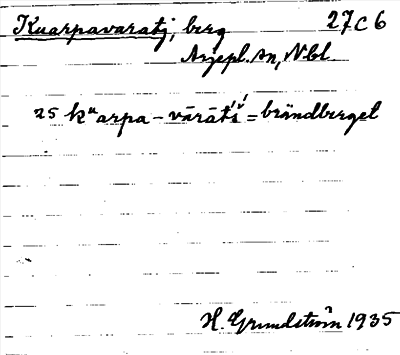 Kuarpavaratj, berg 27C6
Arjepl. sn, Nbl
25 kᵘarpa - vārāt́š́ = brändberget
H. Grundström 1935